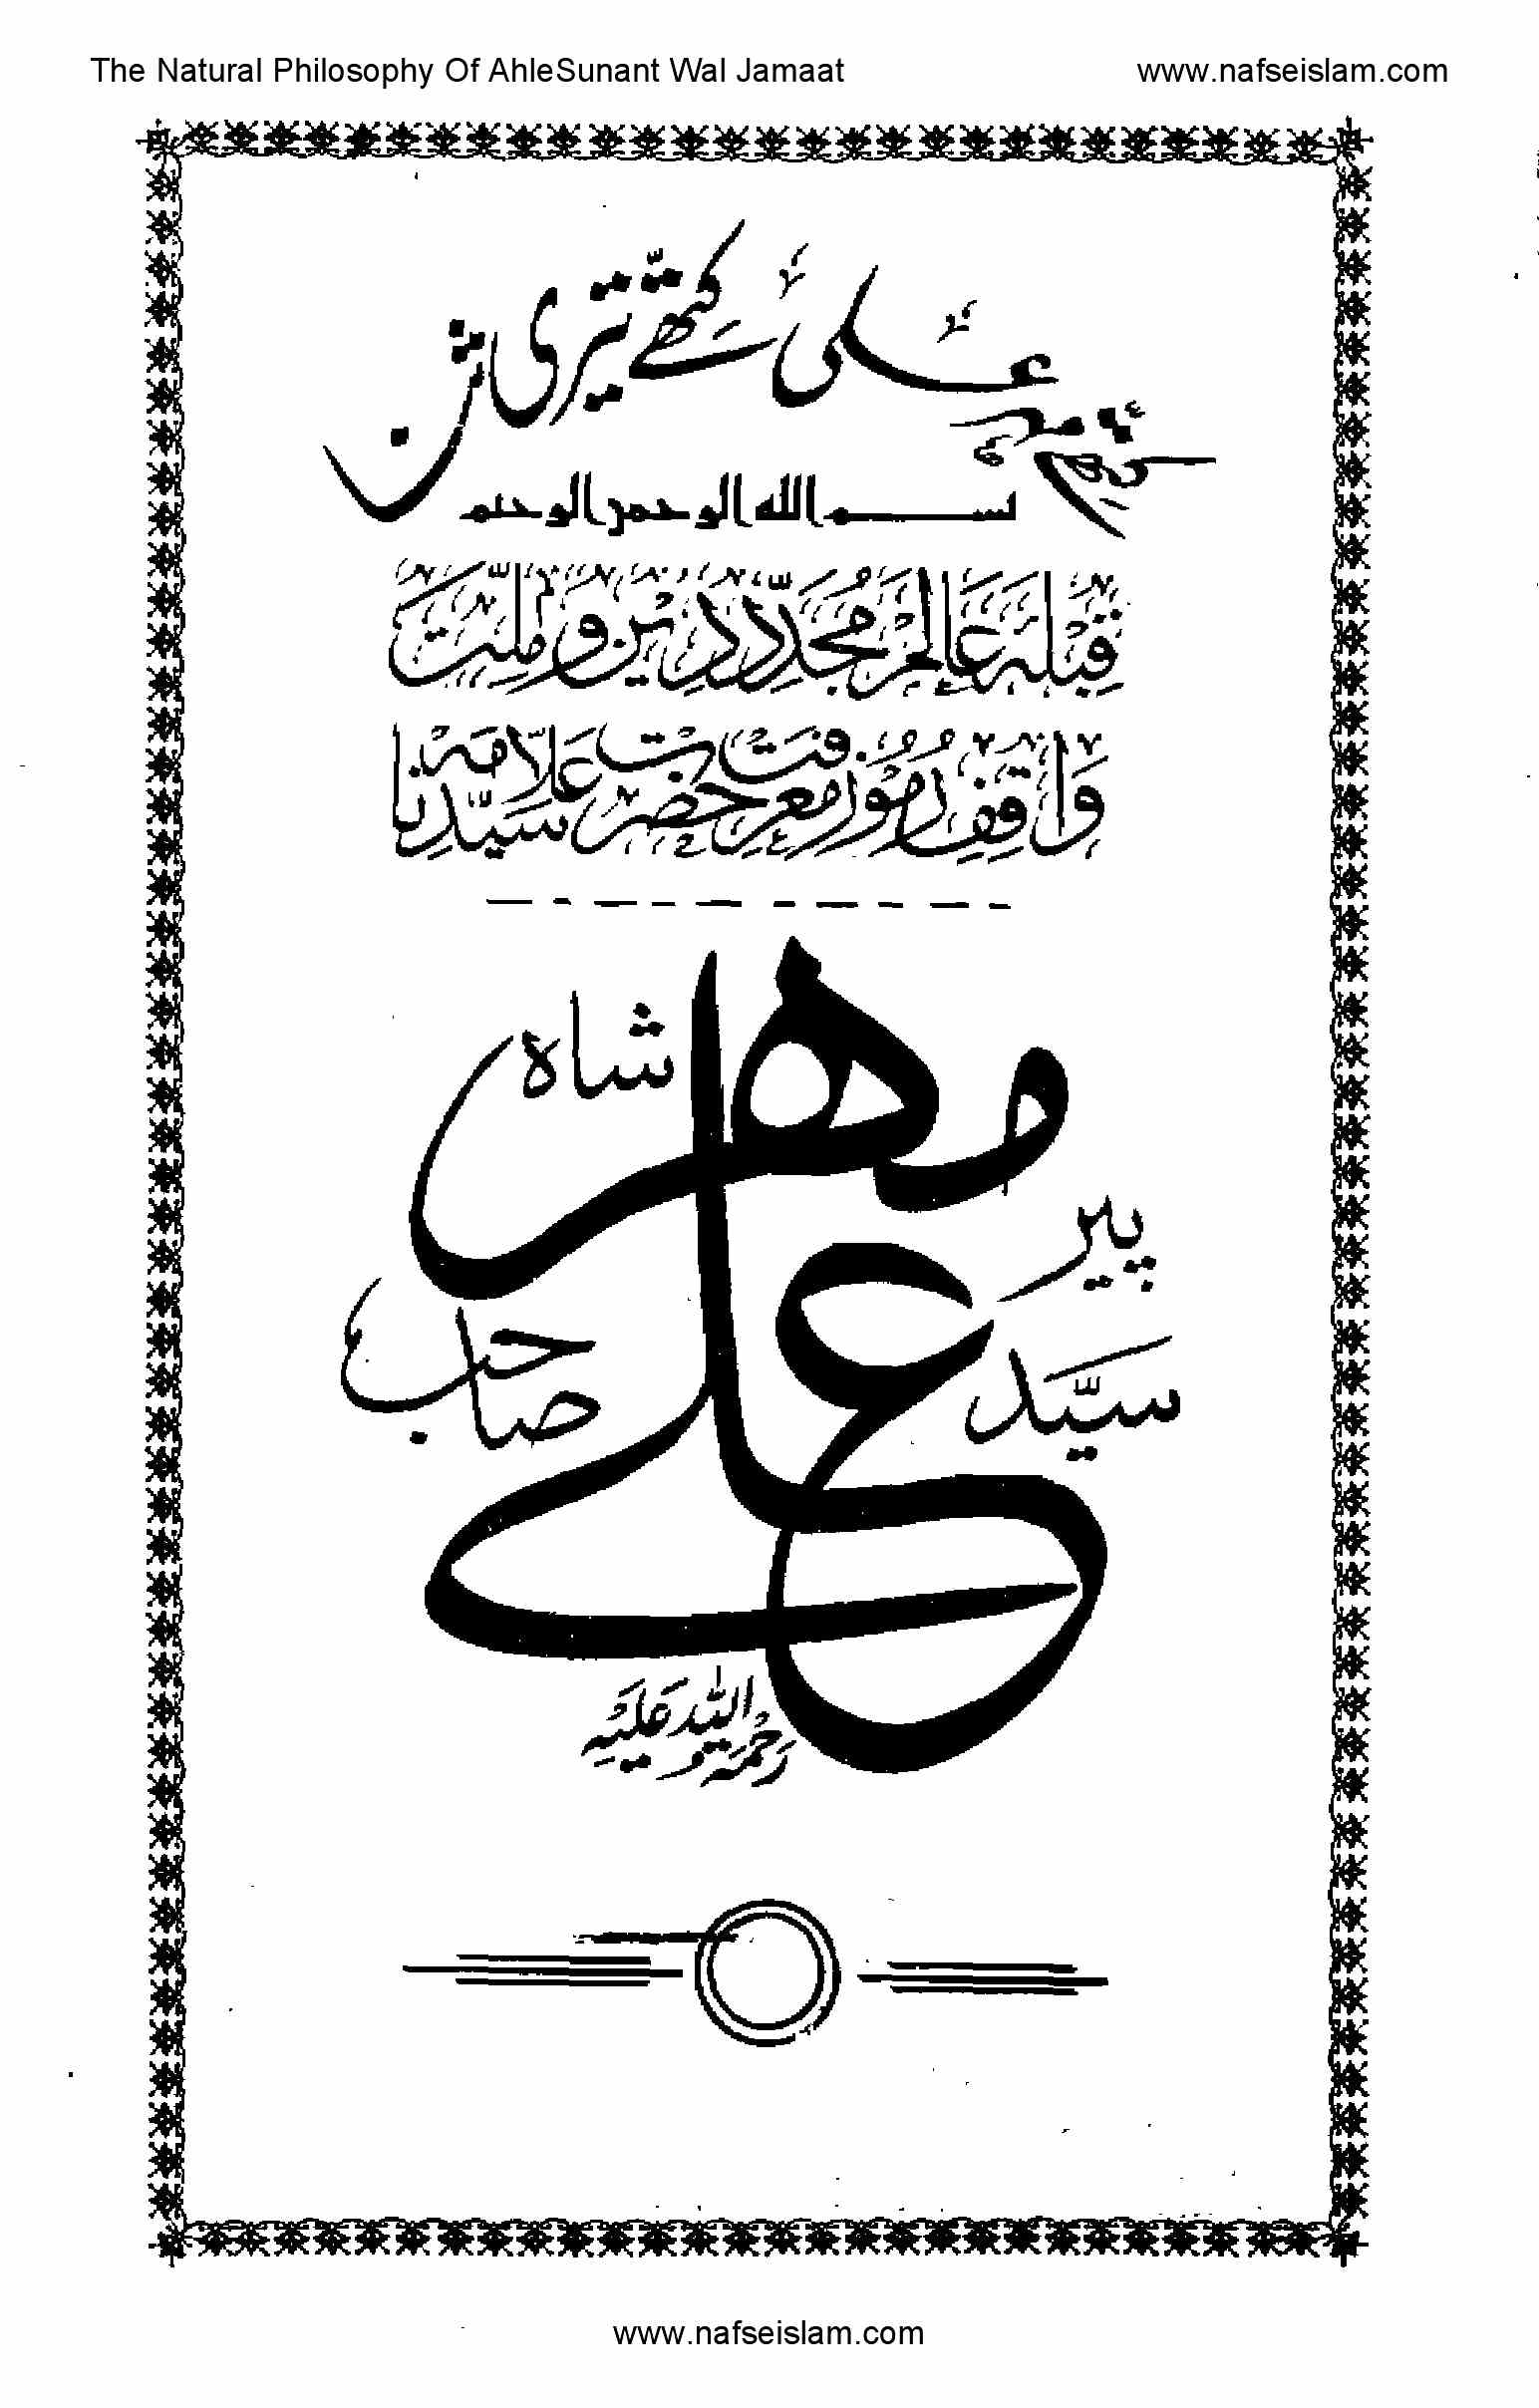 The Natural Philosophy Of AhleSunant Wal Jamaat www.nafseislam.com
کتھے مہر علی کتھے تیری ثن
بسم الله الرحمن الرحیم
قِبْلَۂ عَالَمْ مُجَدِّدِ دِیْن وَ مِلَّتْ
وَاقِفِ رُمُوْزِ مَعْرِفَتْ حَضْرَتْ عَلَّامَہْ سَیِّدِنا
پیر سیّد
مهر علے
شاہ
صاحب
رَحْمَۃُ اللہِ عَلَیْہِ
www.nafseislam.com